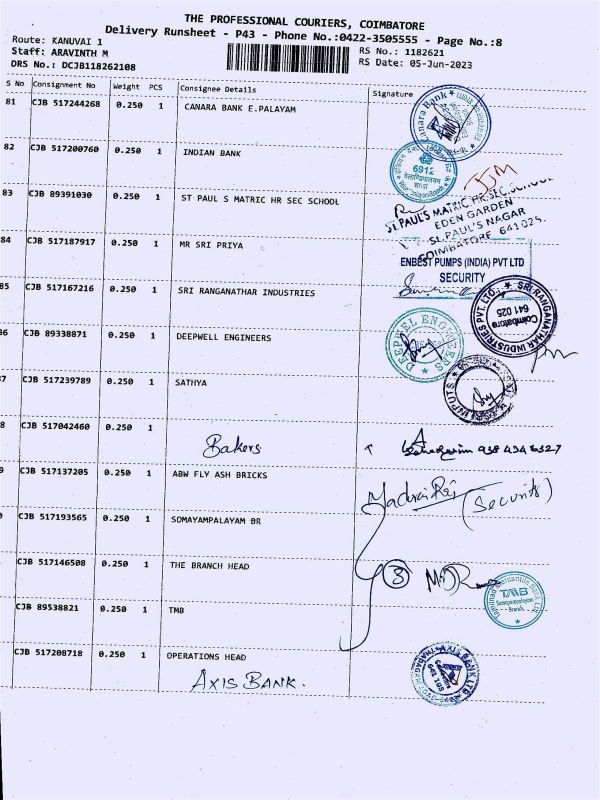 THE PROFESSIONAL COURIERS, COIMBATORE
Delivery Runsheet - P43 - Phone No.:0422-3505555 - Page No.:8
Route: KANUVAI 1
Staff: ARAVINTH M
RS No.: 1182621
DRS No.: DCJB118262108
RS Date: 05-Jun-2023
S No Consignment No Weight PCS Consignee Details Signature
81 CJB 517244268 0.250 1 CANARA BANK E.PALAYAM
Canara Bank
82 CJB 517200760 0.250 1 INDIAN BANK
6912
83 CJB 89391030 0.250 1 ST PAUL S MATRIC HR SEC SCHOOL
ST.PAUL'S MATRIC.HR.SEC.SCHOOL
EDEN GARDEN
ST.PAUL'S NAGAR
COIMBATORE 641 025.
84 CJB 517187917 0.250 1 MR SRI PRIYA
ENBEST PUMPS (INDIA) PVT LTD
SECURITY
85 CJB 517167216 0.250 1 SRI RANGANATHAR INDUSTRIES
SRI RANGANATHAR INDUSTRIES PVT. LTD.
Coimbatore
641 025
86 CJB 89338871 0.250 1 DEEPWELL ENGINEERS
DEEPWEL ENGINEERS
7 CJB 517239789 0.250 1 SATHYA
INPUTS
8 CJB 517042460 0.250 1
Bakers
938 434 6327
9 CJB 517137205 0.250 1 ABW FLY ASH BRICKS
Madurai Raj (Security)
0 CJB 517193565 0.250 1 SOMAYAMPALAYAM BR
CJB 517146508 0.250 1 THE BRANCH HEAD
3
Tamilnad Mercantile Bank Ltd
TMB
Somayampalayam
Branch
CJB 89538821 0.250 1 TMB
CJB 517208718 0.250 1 OPERATIONS HEAD
AXIS BANK.
AXIS BANK LTD